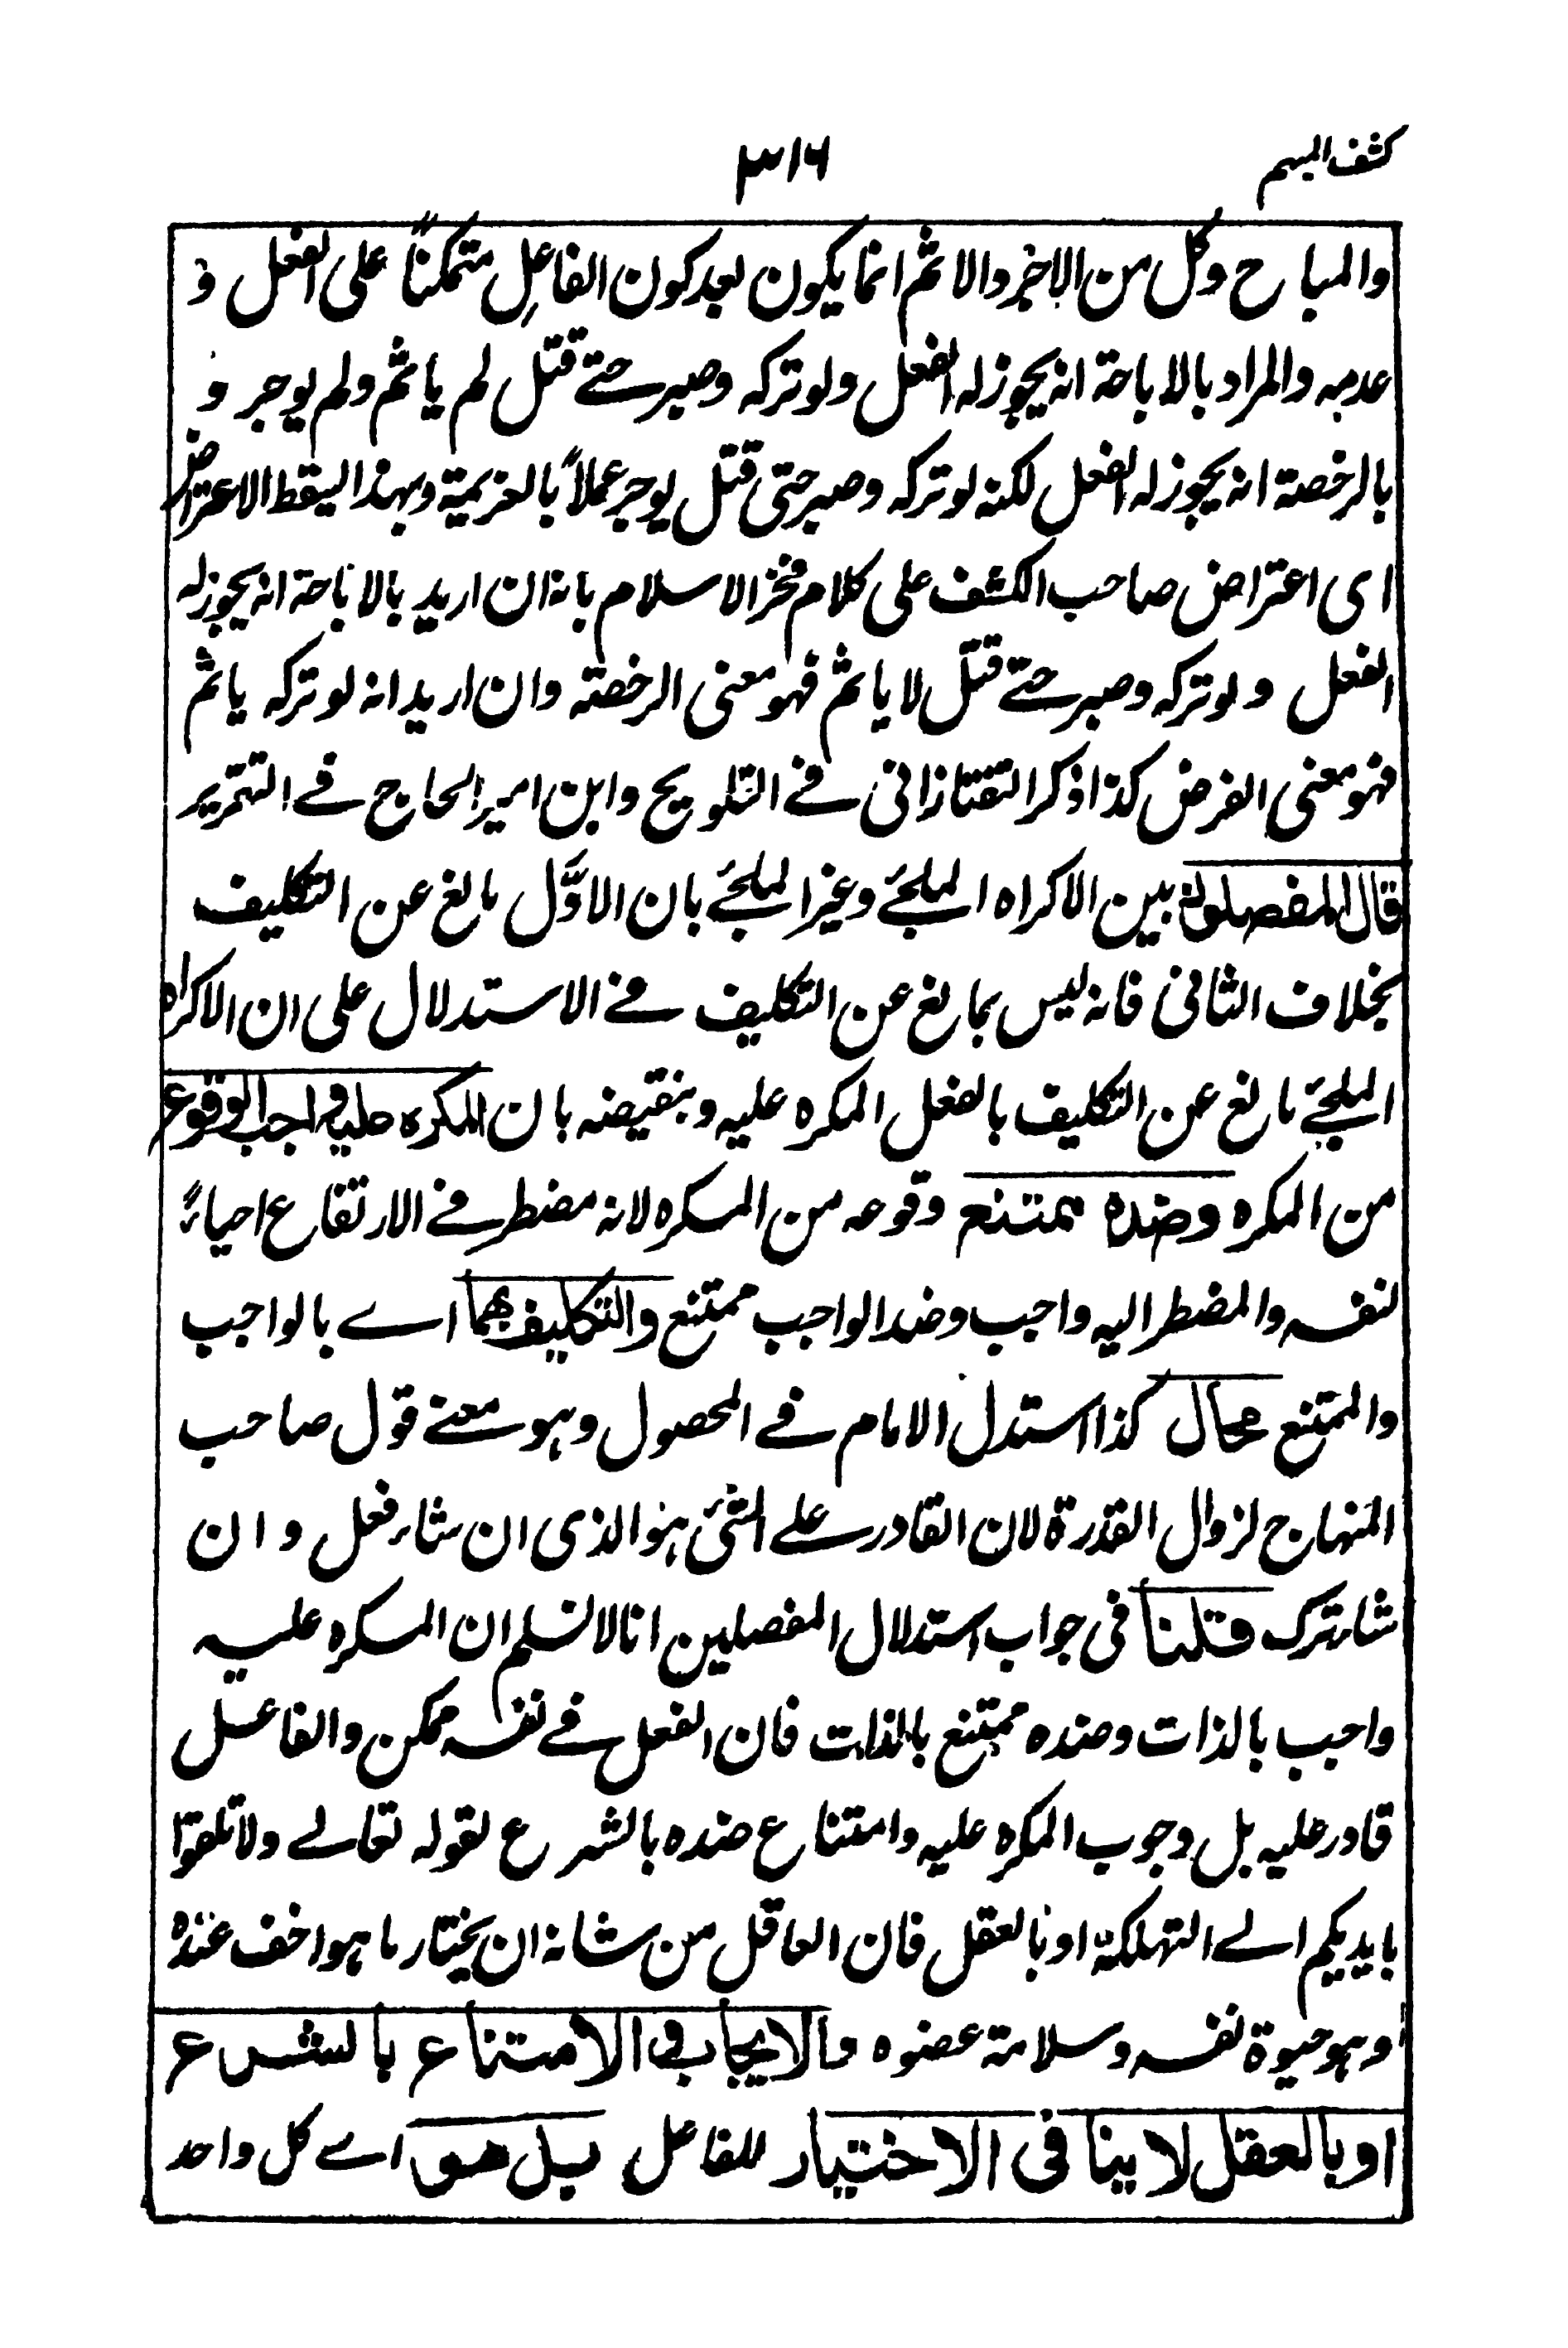 كشف المبهم
٣١٦
والمباح وكل من الاجر والاثم انما يكون بعد كون الفاعل متمكناً على الفعل و
عدمه والمراد بالاباحة انه يجوز له الفعل ولو تركه وصبر حتے قتل لم ياثم ولم يوجر و
بالرخصة انه يجوز له الفعل لكنه لو تركه وصبر حتى قتل يوجر عملاً بالعزيمة وبهذا ليسقط الاعتراض
اى اعتراض صاحب الكشف على كلام فخر الاسلام بانه ان اريد بالاباحة انه يجوز له
الفعل ولو تركه وصبر حتے قتل لا ياثم فهو معنى الرخصته وان اريد انه لو تركه ياثم
فهو معنى الفرض كذا ذكر التفتازانى فے التلويح وابن امير الحاج فے التحرير
قال المفصلون بين الاكراه الملجئے وغير الملجئے بان الاوّل مانع عن التكليف
بخلاف الثانى فانه ليس بمانع عن التكليف فے الاستدلال على ان الاكراه
الملجئے مانع عن التكليف بالفعل المكره عليه وبنقيضه بان المكره عليه واجب الوقوع
من المكره وضده يمتنع وقوعه من المكره لانه مضطر فے الارتفاع احياءً
لنفسه والمضطر اليه واجب وضد الواجب ممتنع والتكليف بهما اے بالواجب
والممتنع محال كذا استدل الامام فے المحصول وهو معنے قول صاحب
المنهاج لزوال القدرة لان القادر علے الشئ هو الذى ان شاء فعل وان
شاء ترك قلنا فى جواب استدلال المفصلين انا لا نسلم ان المكره عليه
واجب بالذات وضده ممتنع بالذات فان الفعل فے نفسه ممكن والفاعل
قادر عليه بل وجوب المكره عليه وامتناع ضده بالشرع لقوله تعالے ولا تلقوا
بايديكم الے التهلكة او بالعقل فان العاقل من شانه ان يختار ما هو اخف عنده
وهو حيوة نفسه وسلامة عضوه والايجاب فى الامتناع بالشرع
او بالعقل لا ينافى الاختيار للفاعل بل هو اے كل واحد